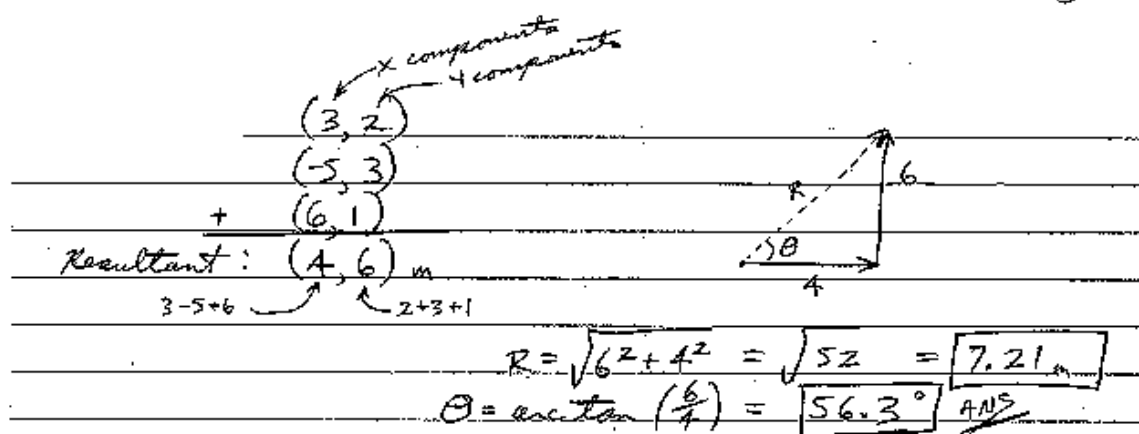 x components
y components
(3, 2)
(-5, 3)
+ (6, 1)
Resultant: (4, 6) m
3-5+6 2+3+1
R 6
θ
4
R = √(6² + 4²) = √52 = 7.21 m
θ = arctan (6/4) = 56.3° ANS